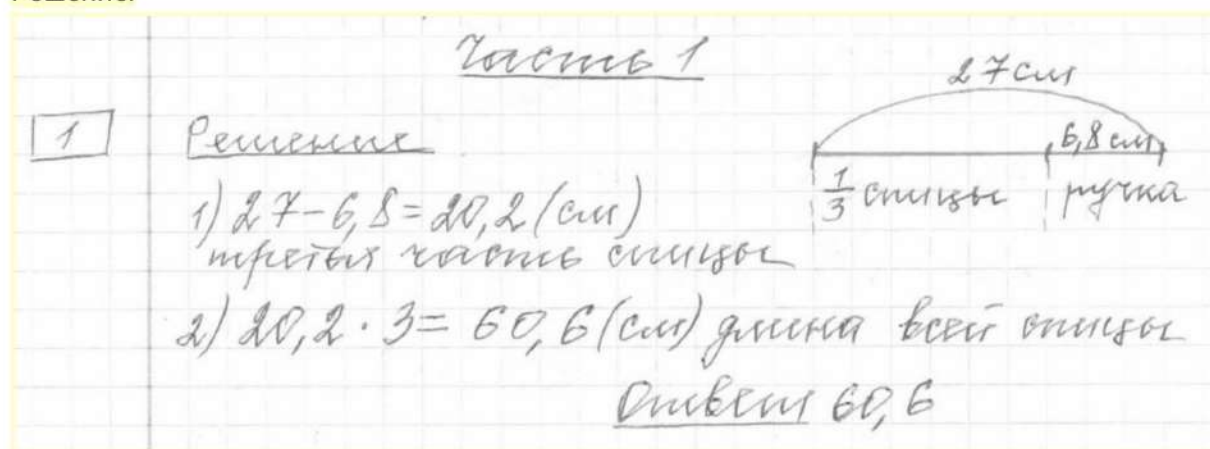 Часть 1
27 см
1
Решение
6,8 см
1/3 спицы
ручка
1) 27-6,8=20,2 (см)
третья часть спицы
2) 20,2 · 3= 60,6 (см) длина всей спицы
Ответ 60,6